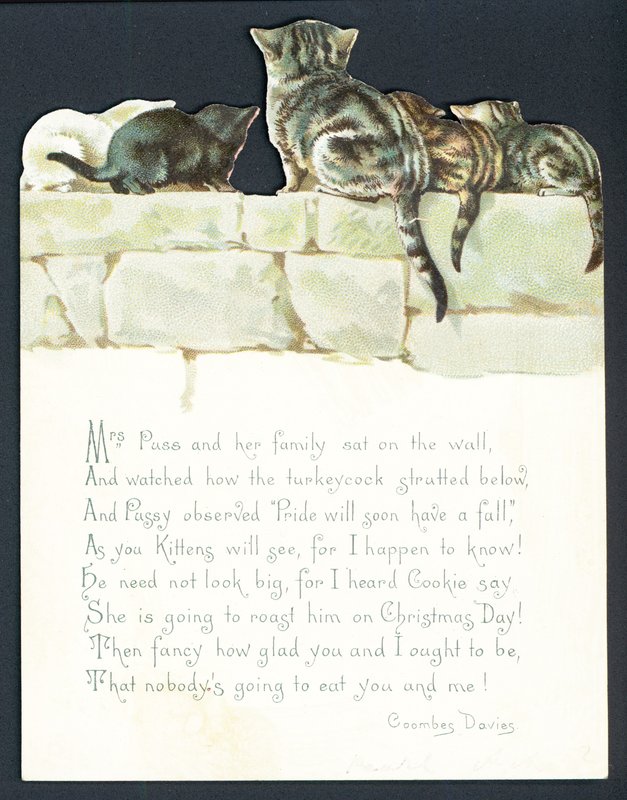 Mrs Puss and her family sat on the wall,
And watched how the turkeycock strutted below,
And Pussy observed "Pride will soon have a fall",
As you Kittens will see, for I happen to know!
He need not look big, for I heard Cookie say
She is going to roast him on Christmas Day!
Then fancy how glad you and I ought to be,
That nobody's going to eat you and me!
Coombes Davies